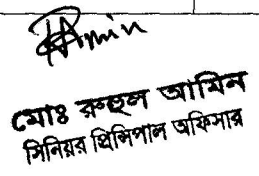 Amin
মোঃ রুহুল আমিন
সিনিয়র প্রিন্সিপাল অফিসার